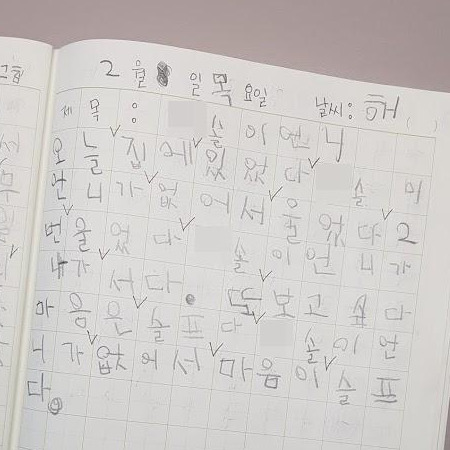 2월 일 목요일 날씨: 해 ( )
제목: 솔이 언니
오늘 집에 있었다 솔이
언니가 없어서 울었다 2
번 울었다 솔이 언니가
내가 서다. 또 보고 싶다
마음은 슬프다 솔이 언
니가 없어서 마음이 슬프
다.